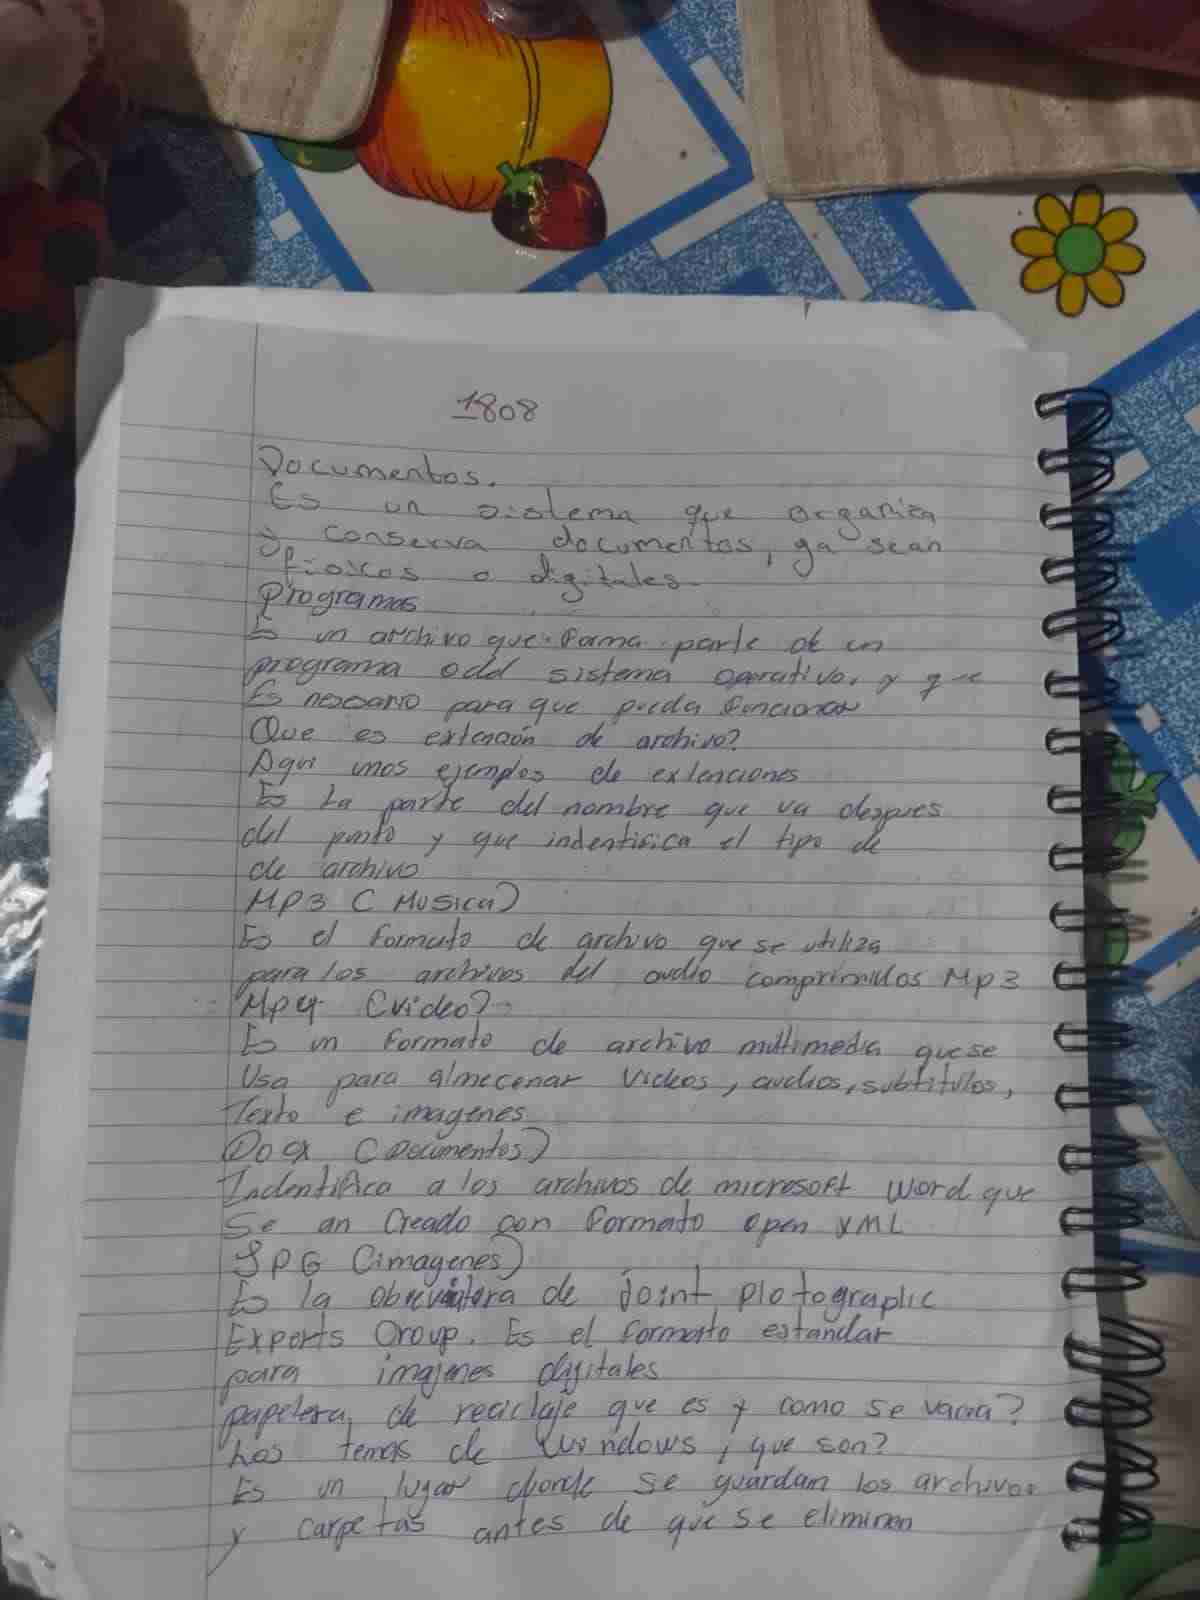 1808
Documentos.
Es un sistema que organiza
y conserva documentos, ya sean
físicos o digitales.
Programas
Es un archivo que forma parte de un
programa odel sistema operativo, y que
Es nesesario para que pueda funcionar
Que es extención de archivo?
Aqui unos ejemplos de extenciones
Es La parte del nombre que va despues
del punto y que indentifica el tipo de
de archivo
MP3 (Musica)
Es el formato de archivo que se utiliza
para los archivos del audio comprimidos Mp3
Mp4 (video?
Es un formato de archivo multimedia que se
Usa para almecenar videos, audios, subtitulos,
Texto e imagenes
Docx (Documentos)
Indentifica a los archivos de microsoft word que
Se an Creado con formato open XML
JPG (imagenes)
Es la de joint Plotographic
Experts Group. Es el formato estandar
para imajenes digitales
papelera de reciclaje que es y como se vacia?
Los temas de Windows, que son?
Es un lugar donde se guardam los archivos
y carpetas antes de que se eliminen